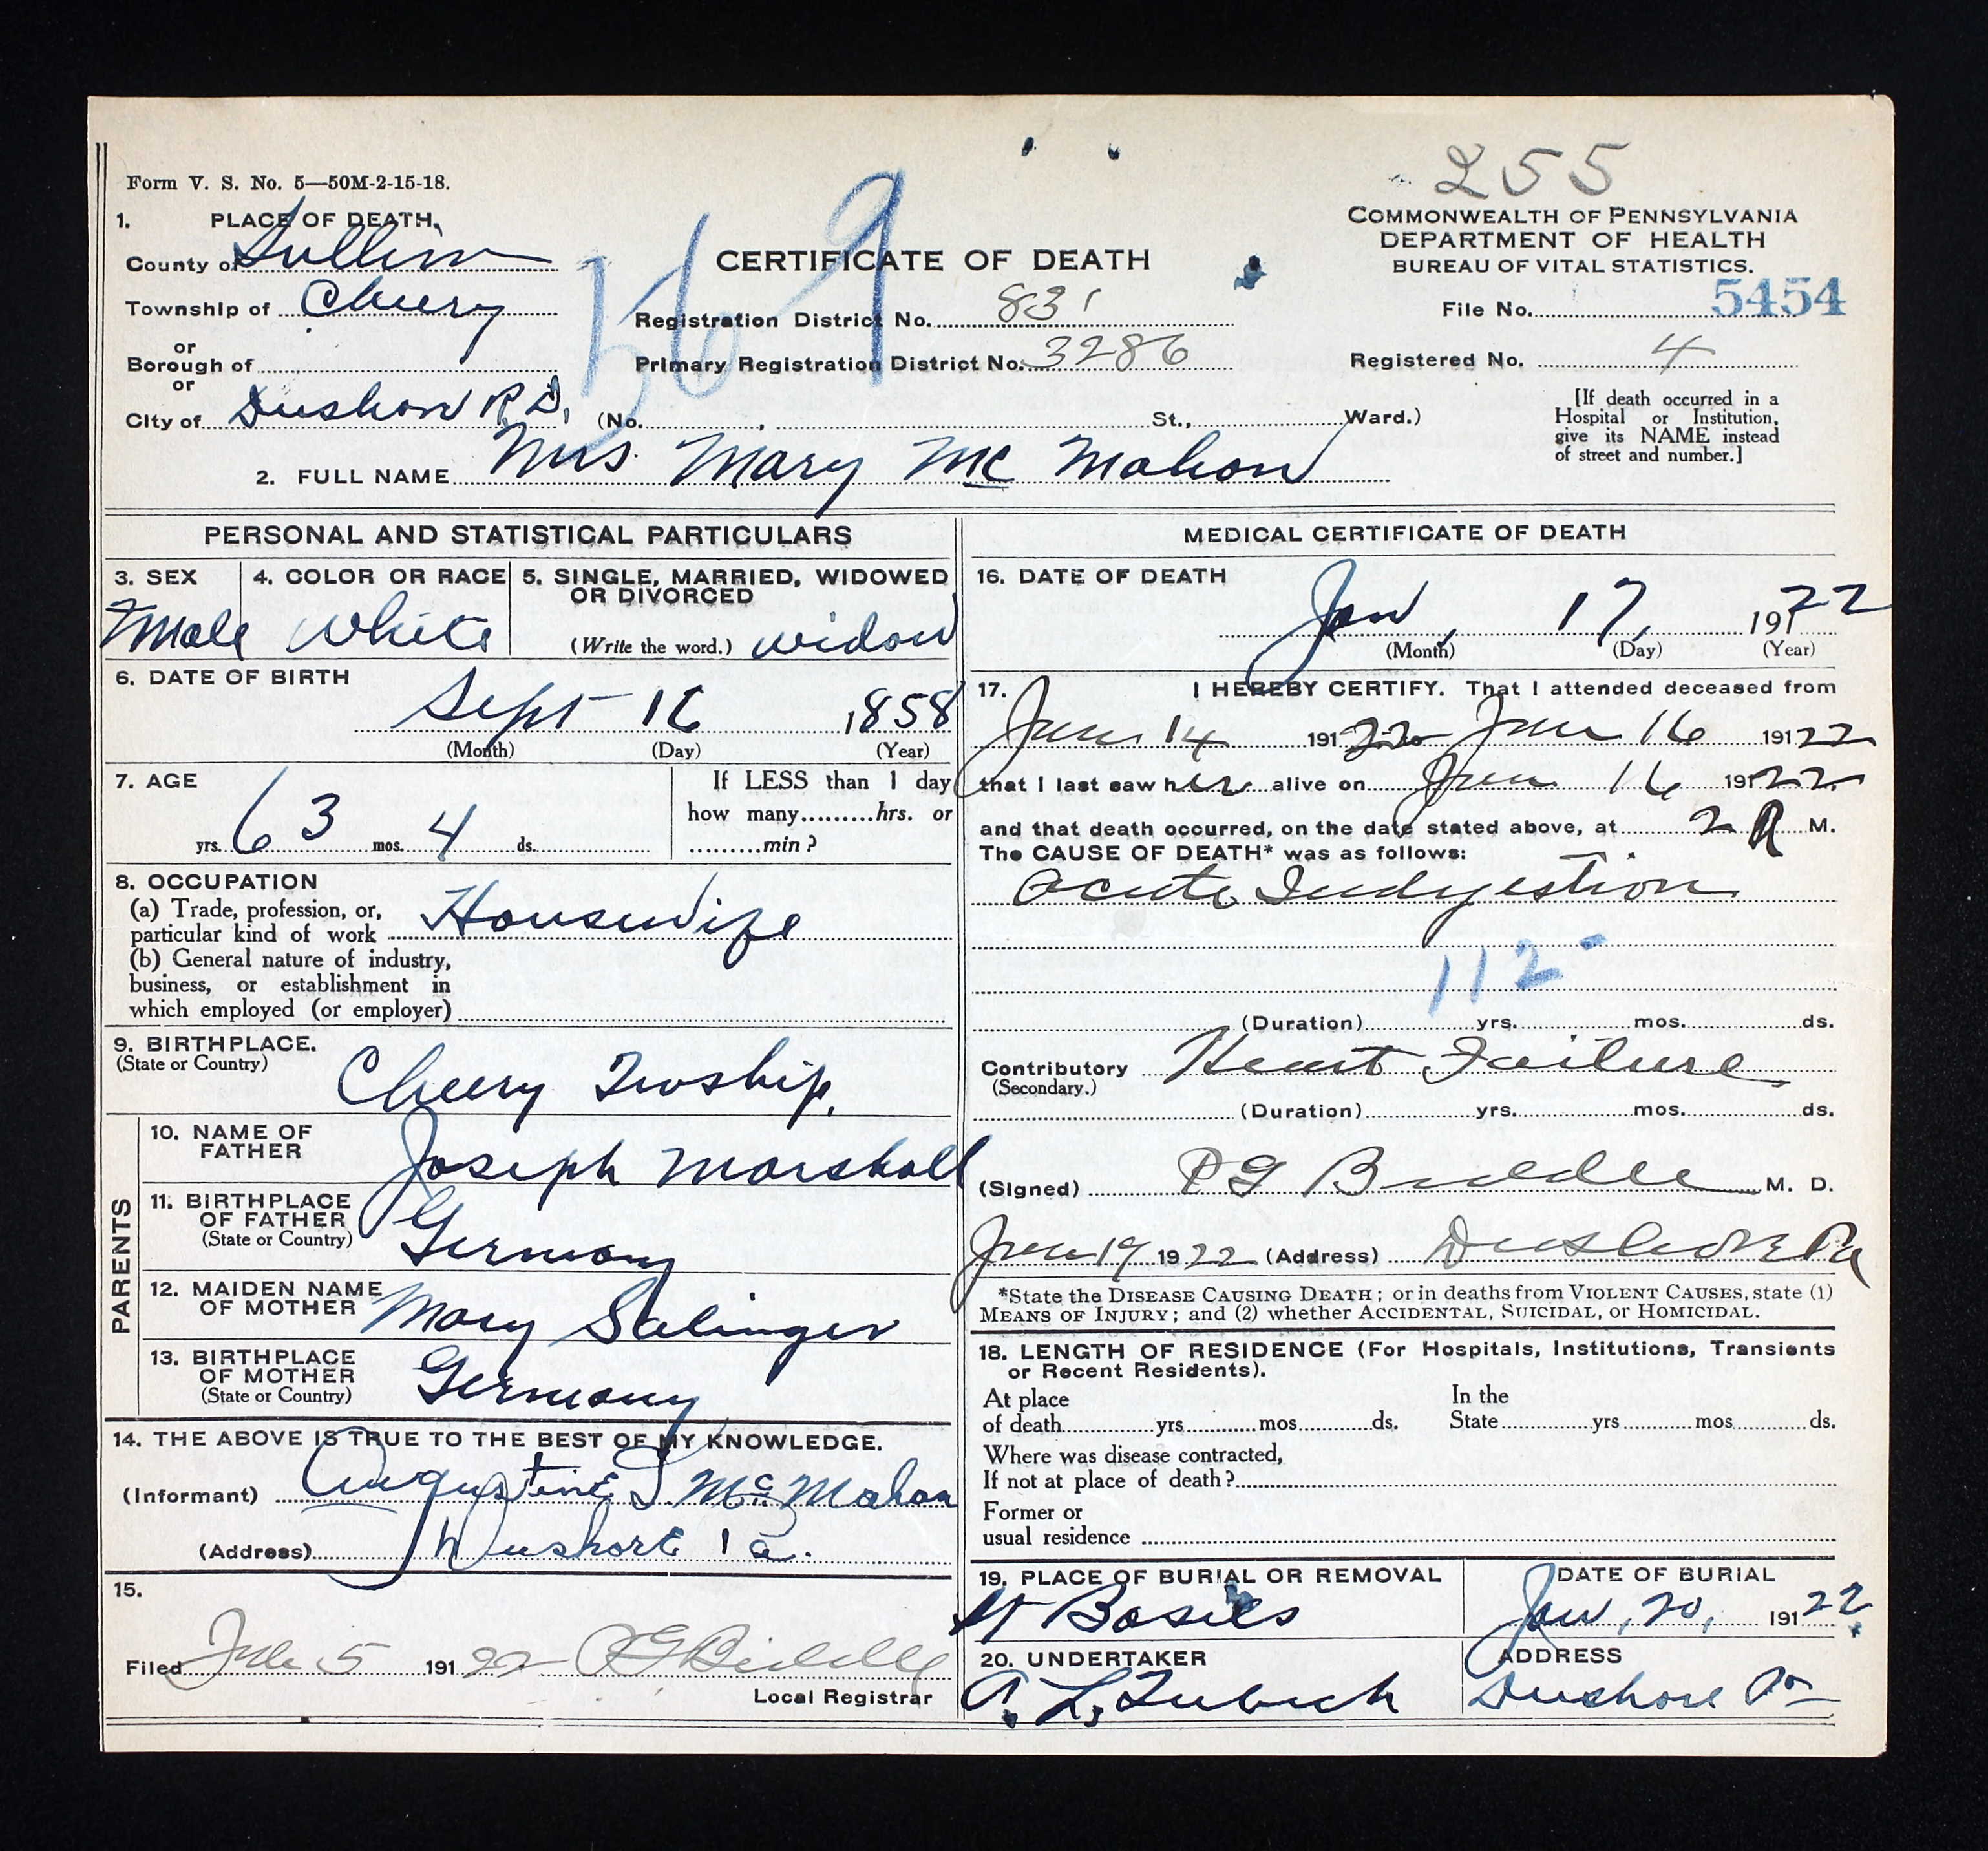 255
Form V. S. No. 5—50M-2-15-18.
COMMONWEALTH OF PENNSYLVANIA
DEPARTMENT OF HEALTH
BUREAU OF VITAL STATISTICS.
CERTIFICATE OF DEATH
169
1. PLACE OF DEATH.
County of Sullivan
Township of Cherry
or
Borough of
or
City of Dushore R.D. (No. , St., Ward.)
Registration District No. 831
Primary Registration District No. 3286
File No. 5454
Registered No. 4
[If death occurred in a
Hospital or Institution,
give its NAME instead
of street and number.]
2. FULL NAME Mrs. Mary Mc Mahon
PERSONAL AND STATISTICAL PARTICULARS
3. SEX
Male
4. COLOR OR RACE
White
5. SINGLE, MARRIED, WIDOWED
OR DIVORCED
(Write the word.) widow
6. DATE OF BIRTH
Sept 16 1858
(Month) (Day) (Year)
7. AGE
yrs. 63 mos. 4 ds.
If LESS than 1 day
how many hrs. or
min?
8. OCCUPATION
(a) Trade, profession, or,
particular kind of work Housewife
(b) General nature of industry,
business, or establishment in
which employed (or employer)
9. BIRTHPLACE.
(State or Country)
Cherry Twoship.
PARENTS
10. NAME OF
FATHER
Joseph Marshall
11. BIRTHPLACE
OF FATHER
(State or Country)
Germany
12. MAIDEN NAME
OF MOTHER
Mary Salinger
13. BIRTHPLACE
OF MOTHER
(State or Country)
Germany
14. THE ABOVE IS TRUE TO THE BEST OF MY KNOWLEDGE.
(Informant) Augustine S Mc Mahon
(Address) Dushore Pa.
15.
Filed 5 191 22
Local Registrar
MEDICAL CERTIFICATE OF DEATH
16. DATE OF DEATH
Jan, 17, 1922
(Month) (Day) (Year)
17. I HEREBY CERTIFY. That I attended deceased from
Jan 14 191 22 to Jan 16 191 22
that I last saw her alive on Jan 16 191 22
and that death occurred, on the date stated above, at 2 M.
The CAUSE OF DEATH* was as follows:
Acute Indigestion
112
(Duration) yrs. mos. ds.
Contributory Heart Failure
(Secondary.)
(Duration) yrs. mos. ds.
(Signed) P G Biddle M. D.
Jan 19 1922 (Address) Dushore Pa
*State the DISEASE CAUSING DEATH; or in deaths from VIOLENT CAUSES, state (1)
MEANS OF INJURY; and (2) whether ACCIDENTAL, SUICIDAL, or HOMICIDAL.
18. LENGTH OF RESIDENCE (For Hospitals, Institutions, Transients
or Recent Residents).
At place
of death yrs mos ds.
In the
State yrs mos ds.
Where was disease contracted,
If not at place of death?
Former or
usual residence
19. PLACE OF BURIAL OR REMOVAL
St Basils
DATE OF BURIAL
Jan, 20, 191 22
20. UNDERTAKER
ADDRESS
Dushore Pa